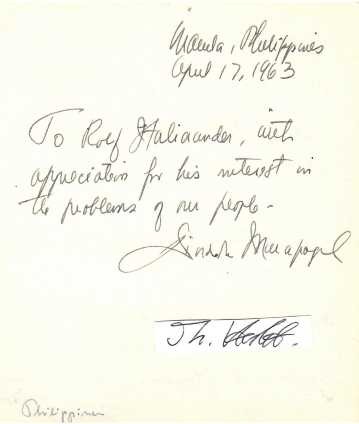 Manila, Philippines
April 17, 1963
To Rolf Italiaander, with
appreciation for his interest in
the problems of our people -
Diosdado Macapagal
Th.
Philippinen